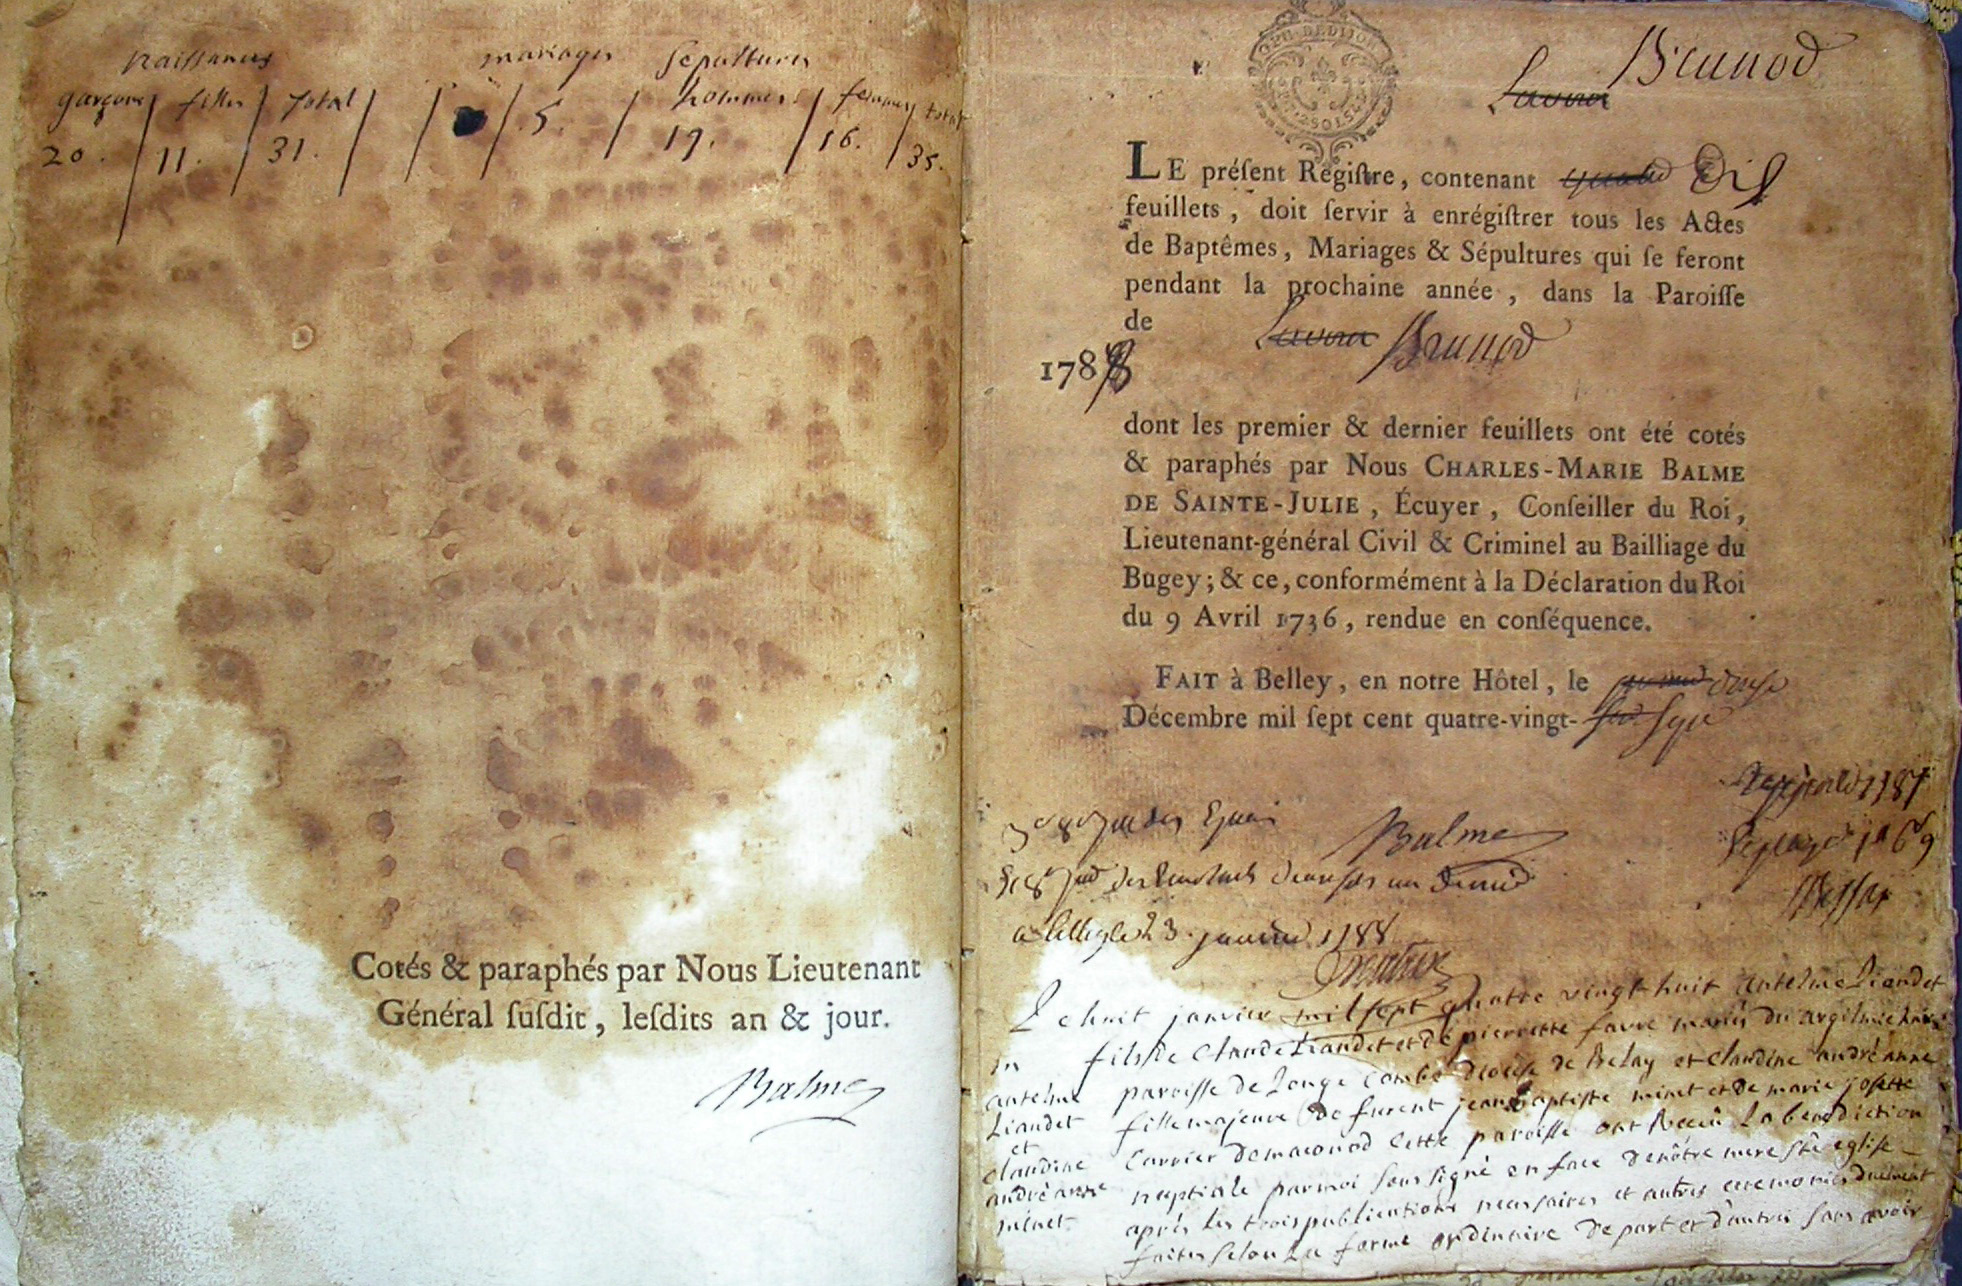 naissances mariages sepultures
garçons filles total hommes femmes total
20. 11. 31. 5. 19. 16. 35.
Cotés & paraphés par Nous Lieutenant
Général ſuſdit, leſdits an & jour.
Balme
Brunod
Lavour
LE préſent Regiſtre, contenant Dix
feuillets, doit ſervir à enrégiſtrer tous les Actes
de Baptêmes, Mariages & Sépultures qui ſe feront
pendant la prochaine année, dans la Paroiſſe
de Lavour Brunod
1788
dont les premier & dernier feuillets ont été cotés
& paraphés par Nous CHARLES-MARIE BALME
DE SAINTE-JULIE, Écuyer, Conſeiller du Roi,
Lieutenant-général Civil & Criminel au Bailliage du
Bugey; & ce, conformément à la Déclaration du Roi
du 9 Avril 1736, rendue en conſéquence.
FAIT à Belley, en notre Hôtel, le
Décembre mil ſept cent quatre-vingt- ſept
Balme
23 janvier 1788
Le huit janvier mil sept quatre vingt huit antelme Liandet
fils de Claude Liandet et de pierrette favre mariés du
paroisse de Longe combe diocese de Belay et claudine andréanne
fille majeure de furent jean baptiste minet et de marie josette
Carrier de maconod cette paroisse ont Receu La benediction
nuptiale par moi soussigné en face de nôtre mere ste eglise
après les trois publications necessaires et autres ceremonies duement
faites selon La forme ordinaire de part et d'autres sans avoir
antelme
Liandet
et
claudine
andréanne
minet